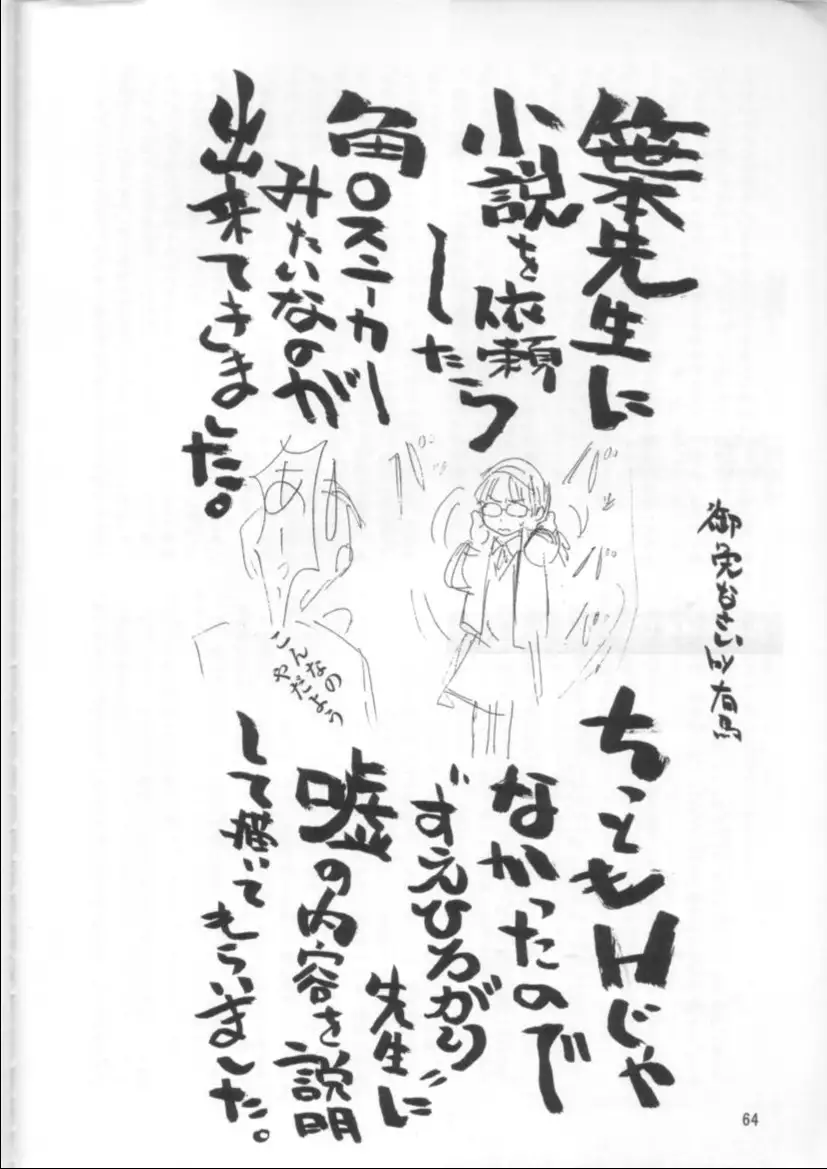 笹本先生に
小説を依頼
したら
角○スニーカー
みたいなのが
出来てきました。
バッ
バッ
バッ
あー
こんなの
やだよう
御免なさい by 有馬
ちっともHじゃ
なかったので
"すえひろがり"
先生に
嘘の内容を説明
して描いて
もらいました。
64